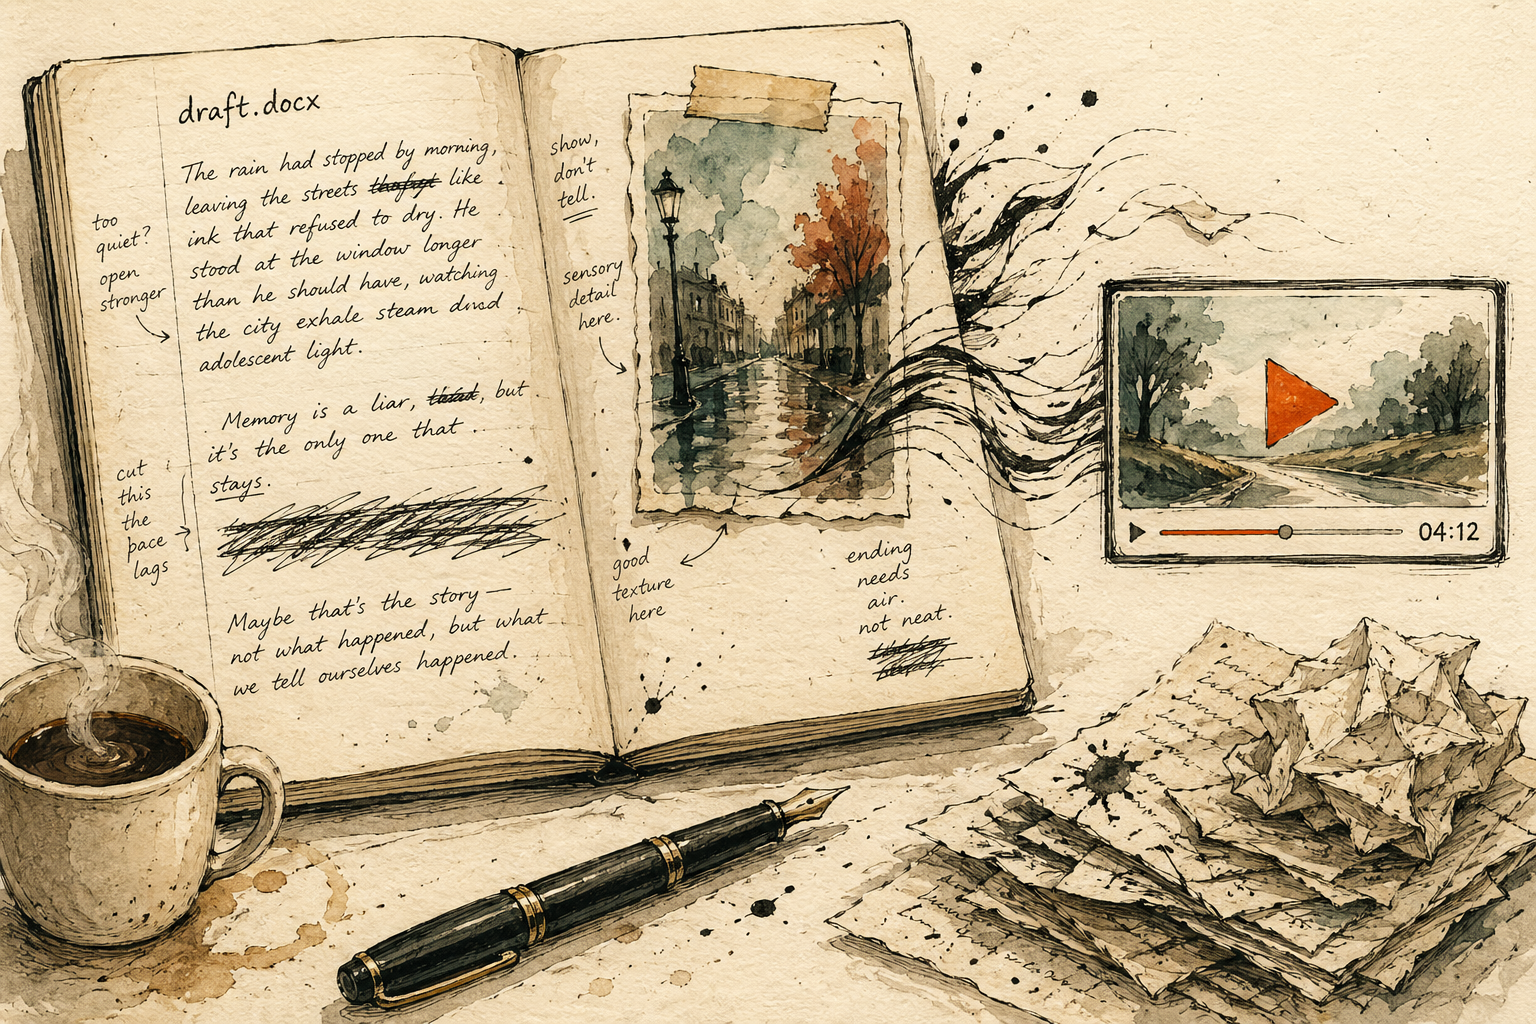 draft.docx
The rain had stopped by morning,
leaving the streets like
ink that refused to dry. He
stood at the window longer
than he should have, watching
the city exhale steam
adolescent light.
Memory is a liar, but
it's the only one that
stays.
Maybe that's the story —
not what happened, but what
we tell ourselves happened.
too
quiet?
open
stronger
cut
this
the
pace
lags
show,
don't
tell.
sensory
detail
here.
good
texture
here
ending
needs
air.
not neat.
04:12